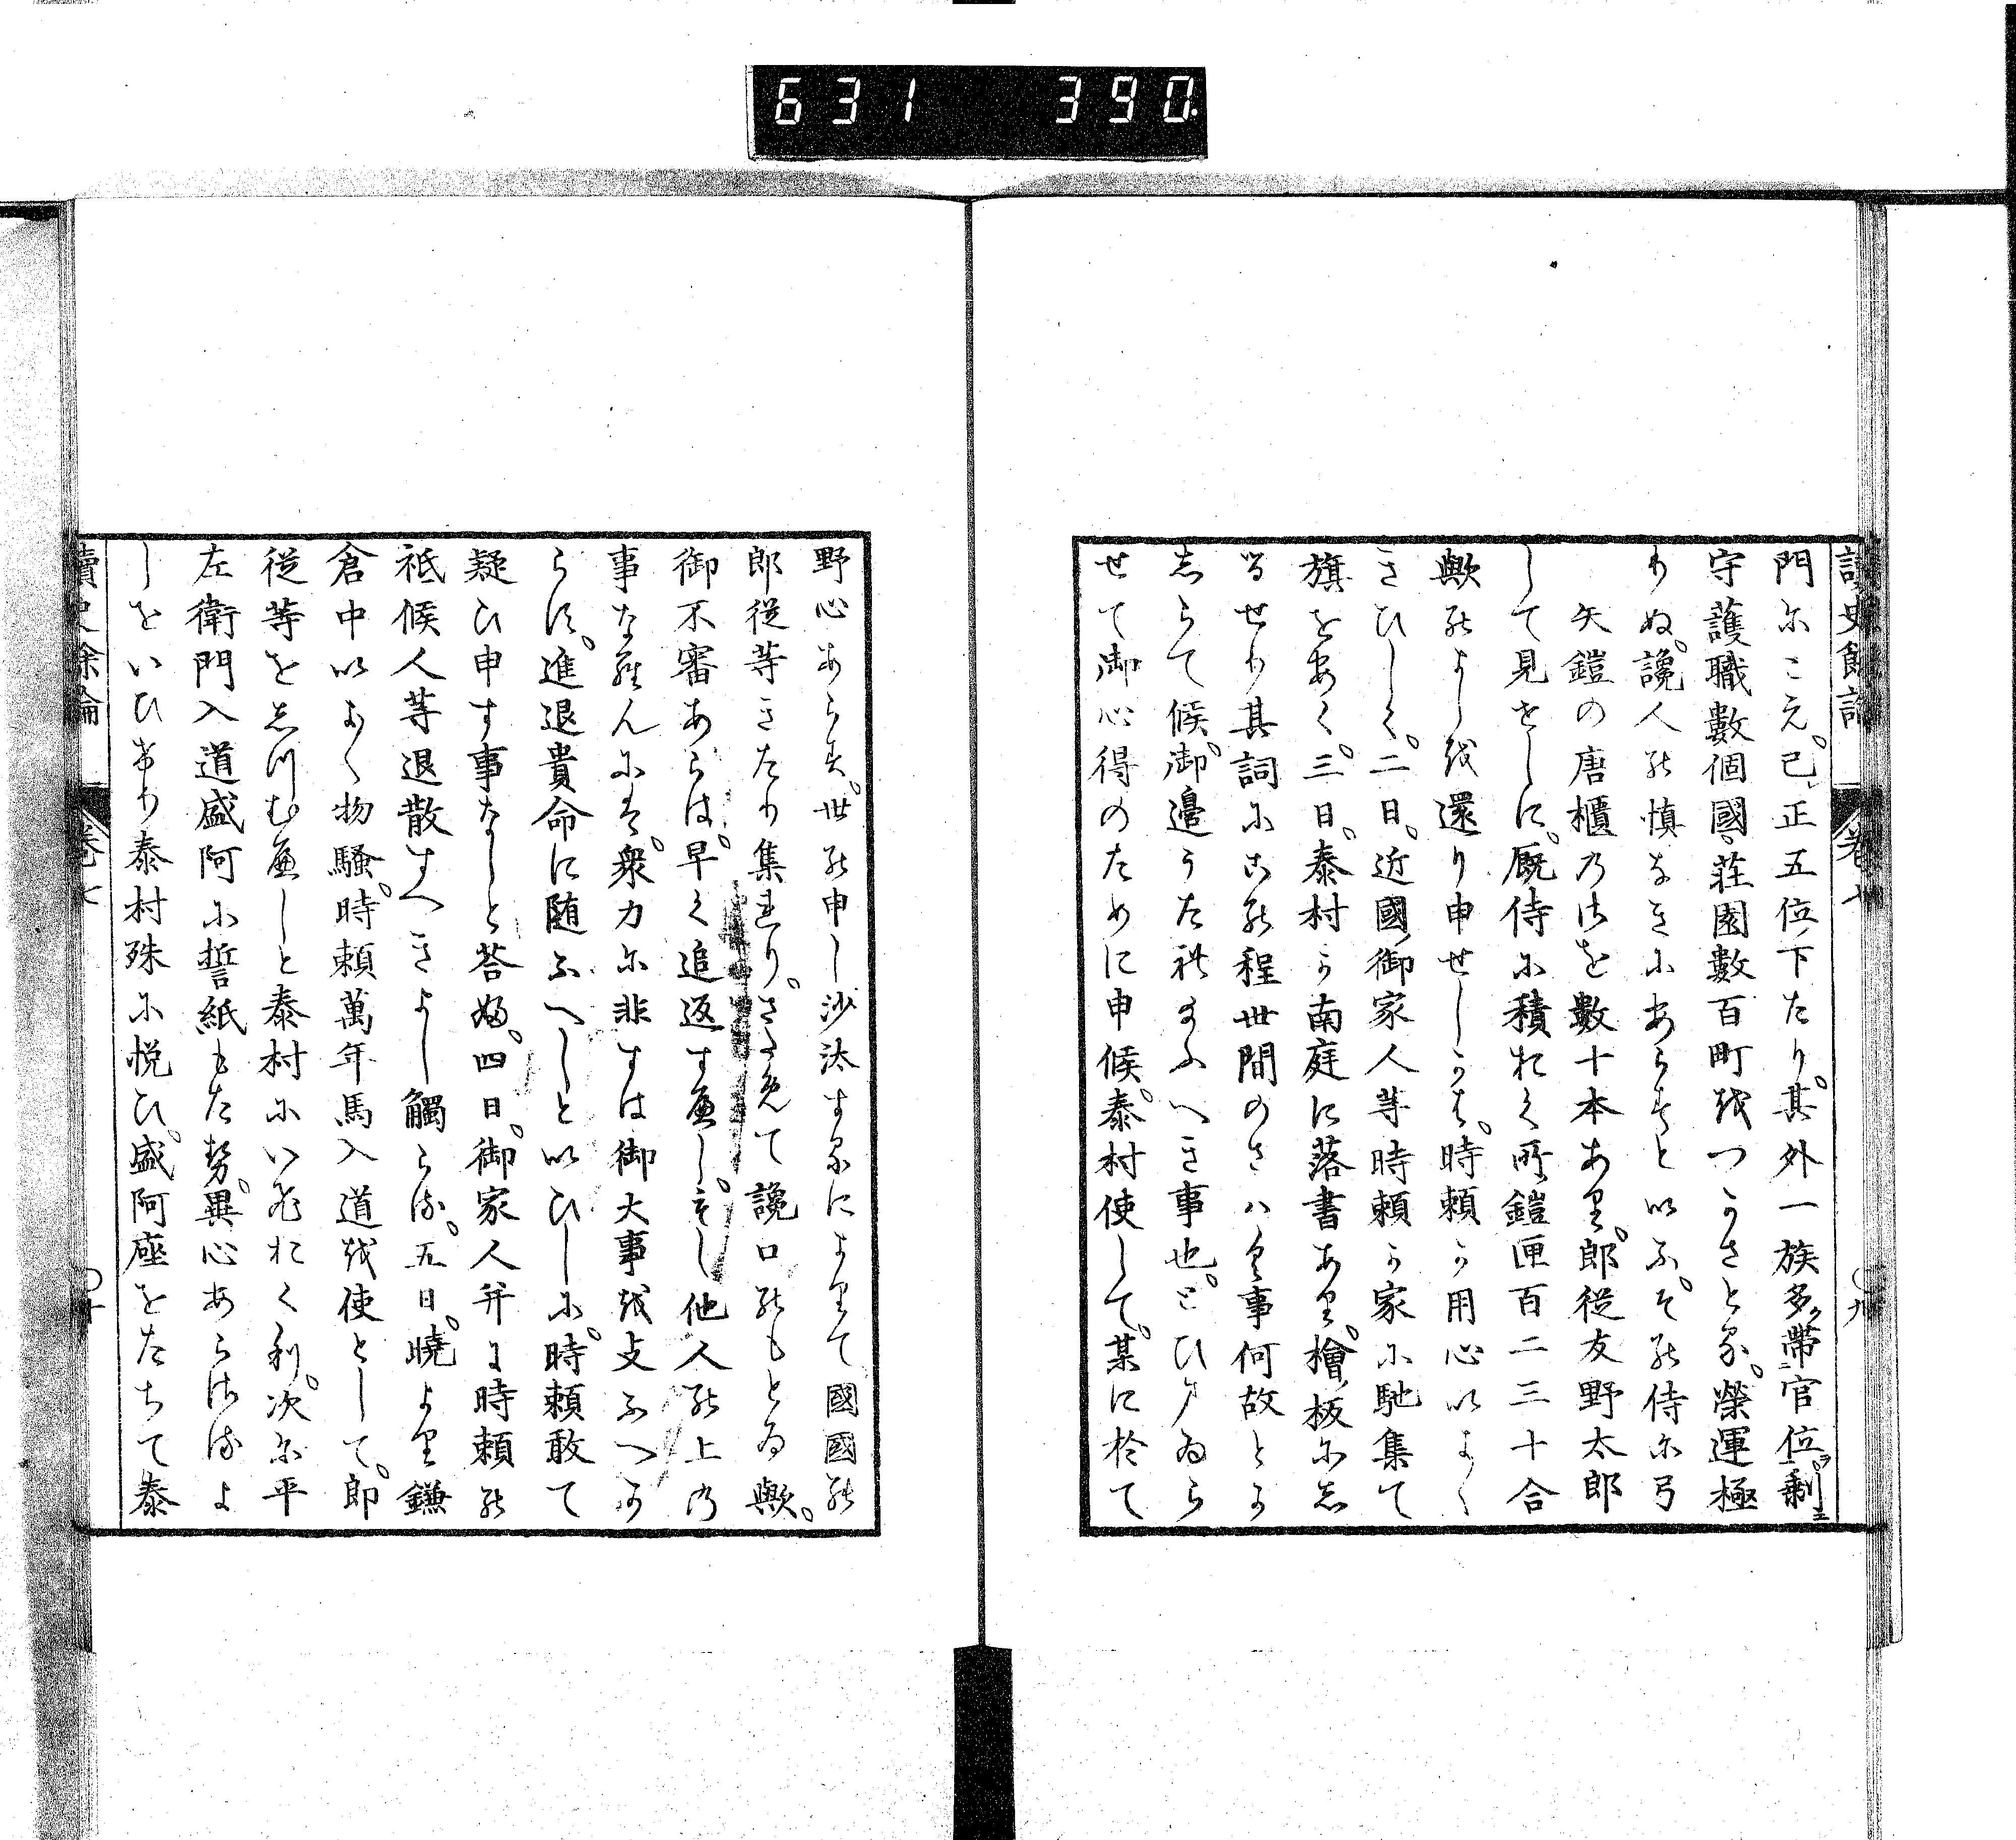 631 390.
讀史餘論 卷七 〇九
門にこえ。已正五位下たり。其外一族多帶官位剩
守護職數個國。荘園數百町をつかさとる。榮運極
りぬ。讒人の慎なきにあらすといふ。その侍に弓
矢鎧の唐櫃のほを數十本あり。郎從友野太郎
して見せしに。厩侍に積おく所鎧匣百二三十合
歟のよしを還り申せしかは。時頼か用心いよく
きひしく。二日。近國御家人等時頼か家に馳集て
旗をあく。三日。泰村か南庭に落書あり。檜板にし
るせり其詞にこの程世間のさハく事何故とか
しらて候。御邊うたれ給ふへき事也。とひまゐら
せて御心得のために申候。泰村使して。某に於て
野心あらす。世の申し沙汰するによりて國國の
郎從等きたり集まり。さためて讒口のもとゐ歟。
御不審あらは。早く追返すへし。もし他人の上の
事ならんには。衆力に非すは御大事を支ふへか
らす。進退貴命に随ふへしといひしに。時頼敢て
疑ひ申す事なしと答ふ。四日。御家人并に時頼の
祗候人等退散すへきよし觸らる。五日。曉より鎌
倉中いよく物騷。時頼萬年馬入道を使として。郎
從等をしつむへしと泰村にいひおくり。次に平
左衛門入道盛阿に誓紙もたせ。異心あらさるよ
しをいひおくり泰村殊に悦ひ。盛阿座をたちて泰
讀史餘論 卷七 〇十